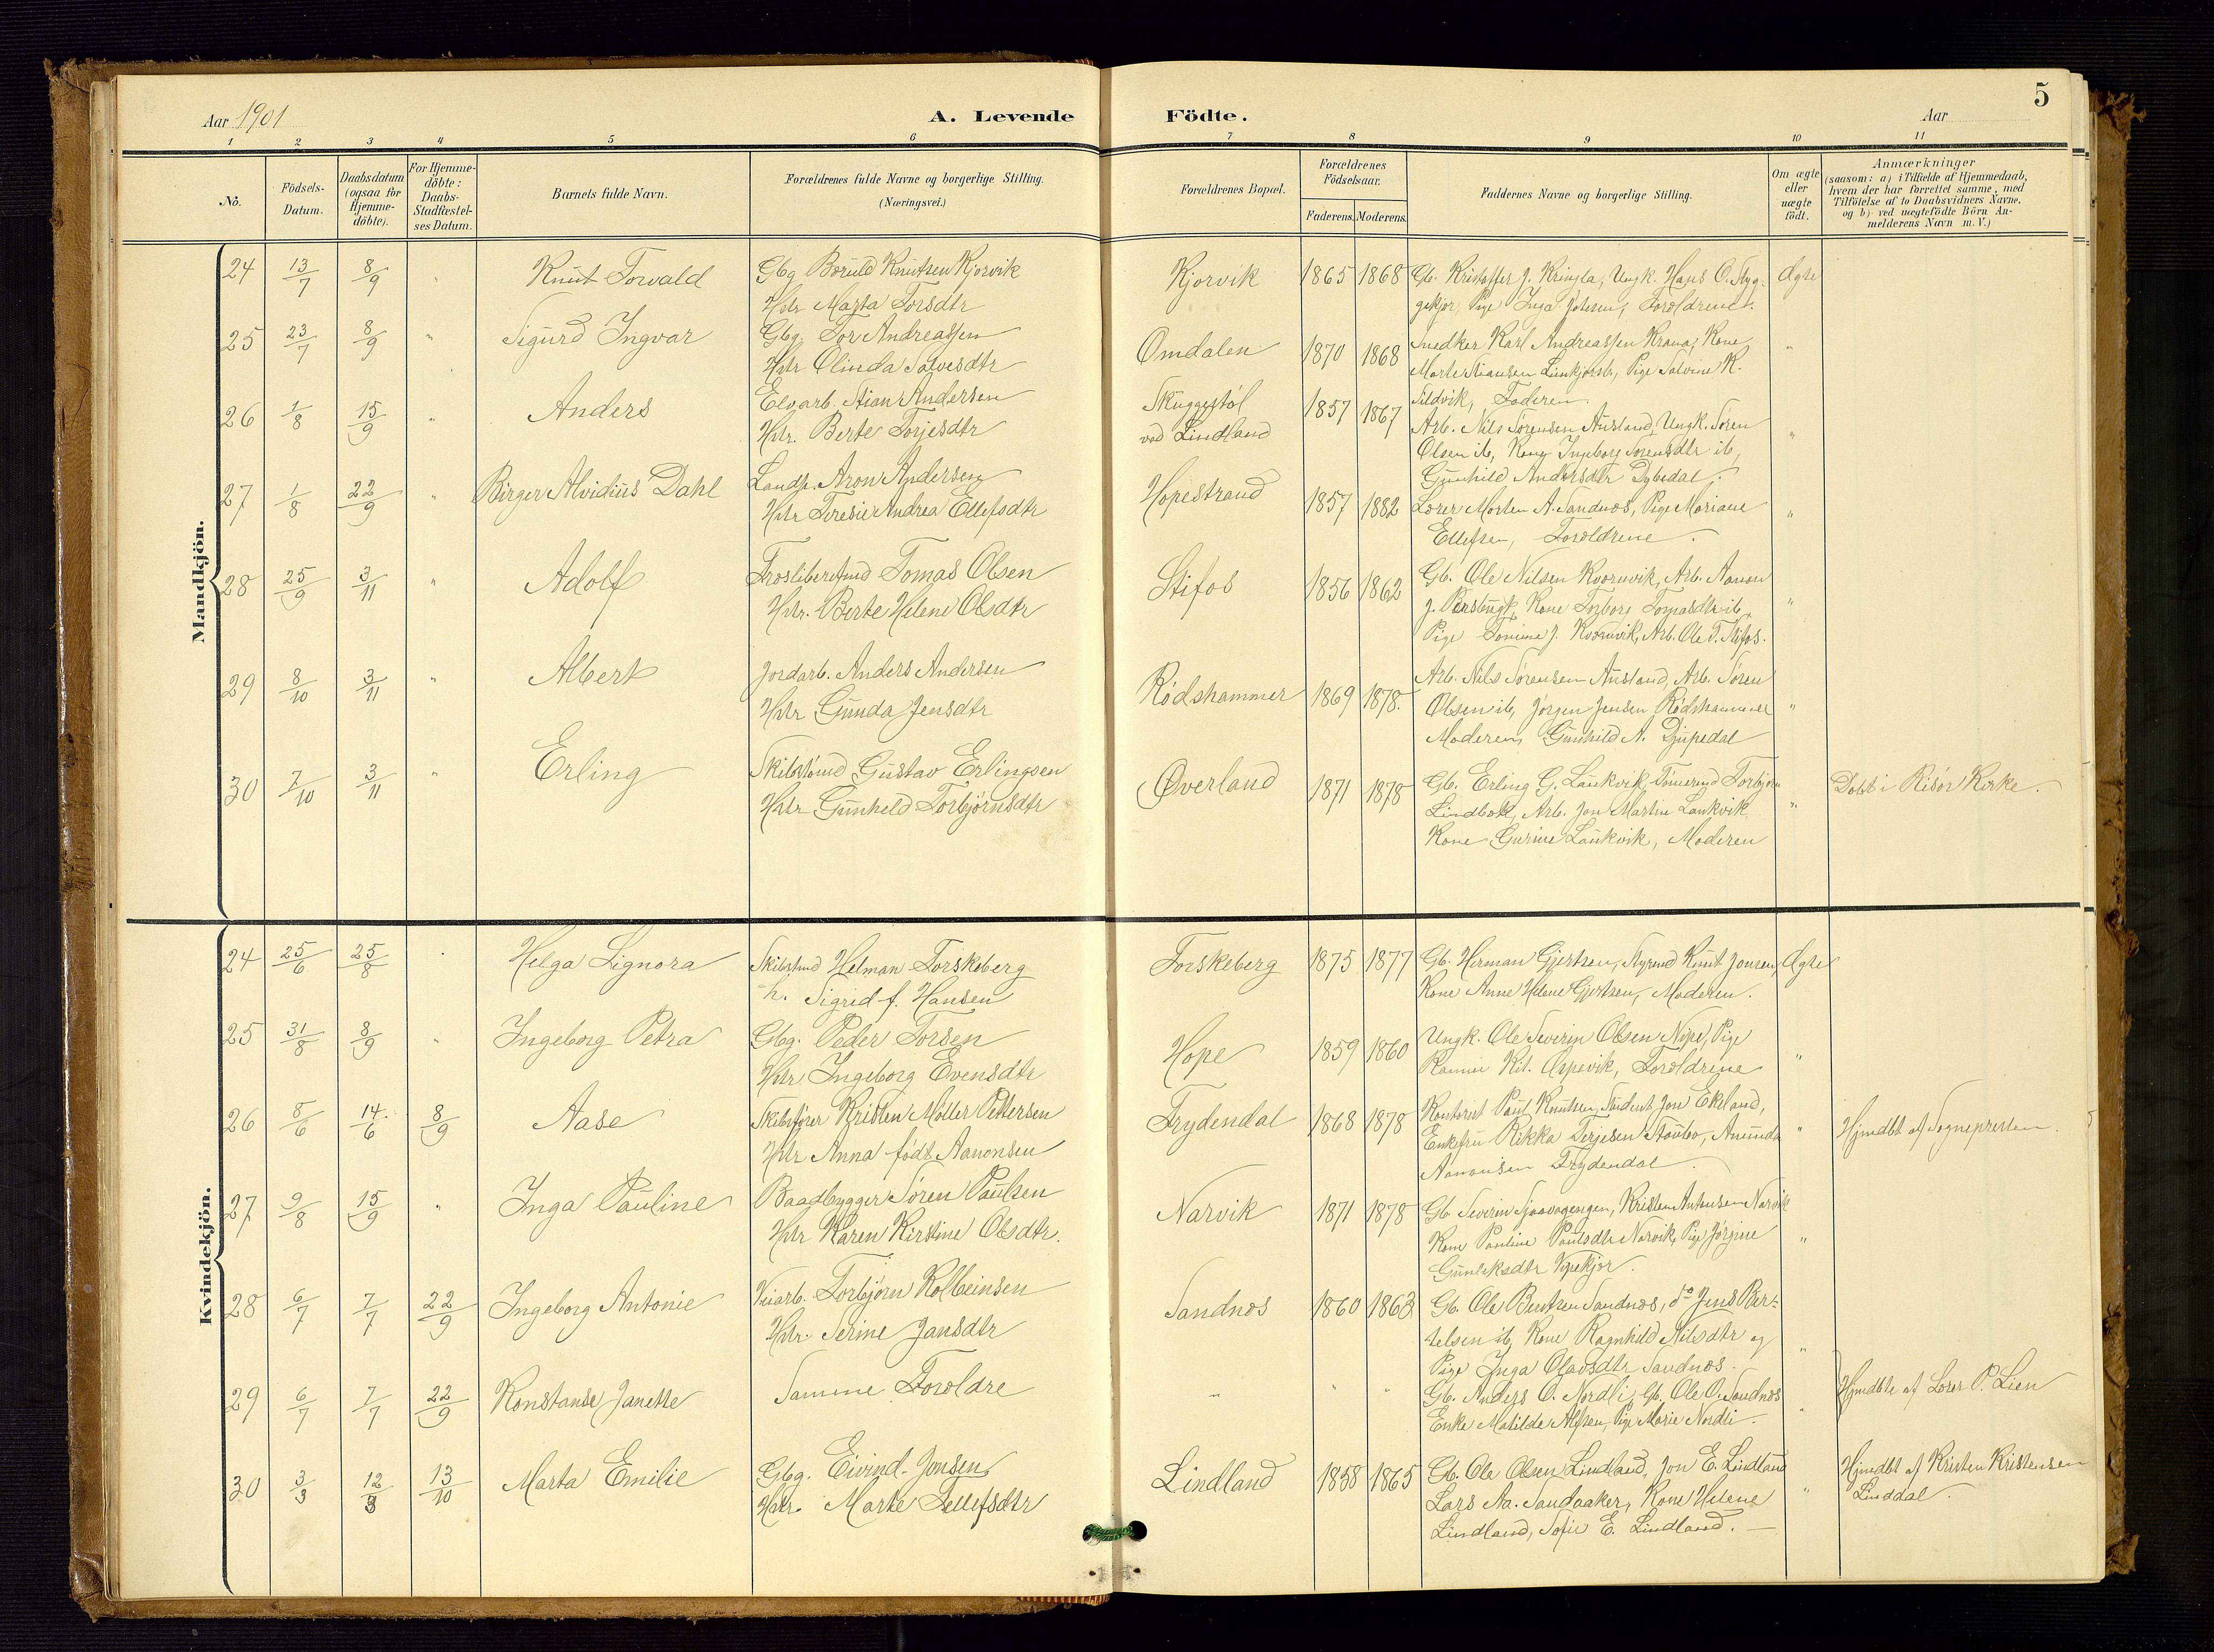 Aar 1901
A. Levende
Födte.
Aar
5
1 2 3 4 5 6 7 8 9 10 11
No.
Födsels-Datum.
Daabsdatum (ogsaa for Hjemme-döbte).
For Hjemme-döbte: Daabs-Stadfæstel-ses Datum.
Barnets fulde Navn.
Forældrenes fulde Navne og borgerlige Stilling.
(Næringsvei.)
Forældrenes Bopæl.
Forældrenes Födselsaar.
Faderens. Moderens.
Faddernes Navne og borgerlige Stilling.
Om ægte eller uægte födt.
Anmærkninger
(saasom: a) i Tilfælde af Hjemmedaab,
hvem der har forrettet samme, med
Tilföielse af to Daabsvidners Navne.
og b) ved uægtefödte Börn An-
melderens Navn m.V.)
Mandkjön.
24 13/7 8/9 " Knut Torvald
Gbg Boruld Knutsen Kjorvik
Hstr Marta Torsdtr
Kjorvik 1865 1868
Gb. Kristoffer J. Kringla, Ungk. Hans O. Myg-
gekjor, Pige Inga Johnsen, Foroldrene.
Ægte
25 23/7 8/9 " Sigurd Ingvar
Gbg. Tor Andreassen
Hstr Olinda Salvesdtr
Omdalen 1870 1868
Snedker Karl Andreassen Krana, Kone
Marte Stiansen Limkjorsb, Pige Salvine K.
Sildvik, Faderen.
"
26 1/8 15/9 " Anders
Elvarb. Stian Andersen
Hstr. Berte Torjesdtr
Skuggestöl
ved Lindland
1857 1867
Arb. Nils Sørensen Ausland, Ungk. Søren
Olsen ib, Kone Ingeborg Sorensdtr ib,
Gunhild Andersdtr Dybedal.
"
27 1/8 22/9 " Birger Alvidius Dahl
Landh. Aron Andersen
Hstr Teresie Andrea Ellefsdtr
Hopestrand 1857 1882
Lorer Morten A. Sandnos, Pige Mariane
Ellefsen, Foroldrene.
"
28 25/9 3/11 " Adolf
Trosliberifmd Tomas Olsen
Hstr. Berte Helene Olsdtr
Stifos 1856 1862
Gb. Ole Nilsen Kvornvik, Arb. Aanon
J. Kone Torborg Tomasdtr ib.
Pige Tomine J. Kvornvik, Arb. Ole T. Stifos.
"
29 8/10 3/11 " Albert
Jordarb. Anders Andersen
Hstr Gunda Jensdtr
Rødshammer 1869 1878.
Arb. Nils Sørensen Ausland, Arb. Søren
Olsen ib, Jörgen Jensen Rødshammer
Moderen, Gunhild A. Djupedal
"
30 7/10 3/11 " Erling
Skibstömd Gustav Erlingsen
Hstr Gunheld Torbjörnsdtr
Øverland 1871 1878
Gb. Erling G. Laukvik, Tömermd Torbjörn
Lindboe, Arb. Jon Martin Laukvik,
Kone Gurine Laukvik, Moderen
"
Dobt i Risör Kirke.
Kvindekjön.
24 25/6 25/8 " Helga Signora
Skibstmd Helman Torskeberg
h. Sigrid f. Hansen
Torskeberg 1875 1877
Gb. Herman Gjertsen, Styrmd Knut Jonsen,
Kone Anne Helene Gjertsen, Moderen.
Ægte
25 31/8 8/9 " Ingeborg Petra
Gbg. Peder Torsen
Hstr Ingeborg Evensdtr
Hope 1859 1860
Ungk. Ole Severin Olsen Nipe, Pige
Espevik, Foroldrene
"
26 8/6 14/6 8/9 Aase
Skibsförer Kristen Møller Pettersen
Hstr Anna født Aanonsen
Frydendal 1868 1878
Kontorist Paul Knutsen, Student Jon Ekeland,
Enkefru Rikka Terjesen Staubo, Amunda
Aanonsen Frydendal.
"
Hjmdbt af Sognepresten.
27 9/8 15/9 " Inga Pauline
Baadbygger Søren Paulsen
Hstr Karen Kirstine Olsdtr.
Narvik 1871 1878
Gb Severin Sjaavaagengen, Kristen Antonsen Narvik
Kone Pauline Paulsdtr Narvik, Pige Jörgine
Gunleksdtr Vipekjor.
"
28 6/7 7/7 22/9 Ingeborg Antonie
Veiarb. Torbjörn Kolbeinsen
Hstr. Serine Jansdtr
Sandnos 1860 1863
Gb. Ole Bentsen Sandnos, do Jens Ber-
telsen ib, Kone Ragnhild Nilsdtr og
Pige Inga Olavsdtr Sandnos.
"
29 6/7 7/7 22/9 Konstanse Janette
Samme Foroldre
" " "
Gb. Anders O. Nordli, Gb. Ole O. Sandnos
Enke Matilde Alfsen, Pige Marie Nordli.
"
Hjmdbte af Lorer P. Lien
30 3/3 12/3 13/10 Marta Emilie
Gbg. Eivind Jonsen
Hstr. Marte Tellefsdtr
Lindland 1858 1865
Gb. Ole Olsen Lindland, Jon E. Lindland
Lars Aa. Sandaaker, Kone Helene
Lindland, Sofie E. Lindland. —
"
Hjmdbt af Kristen Kristensen
Linddal.